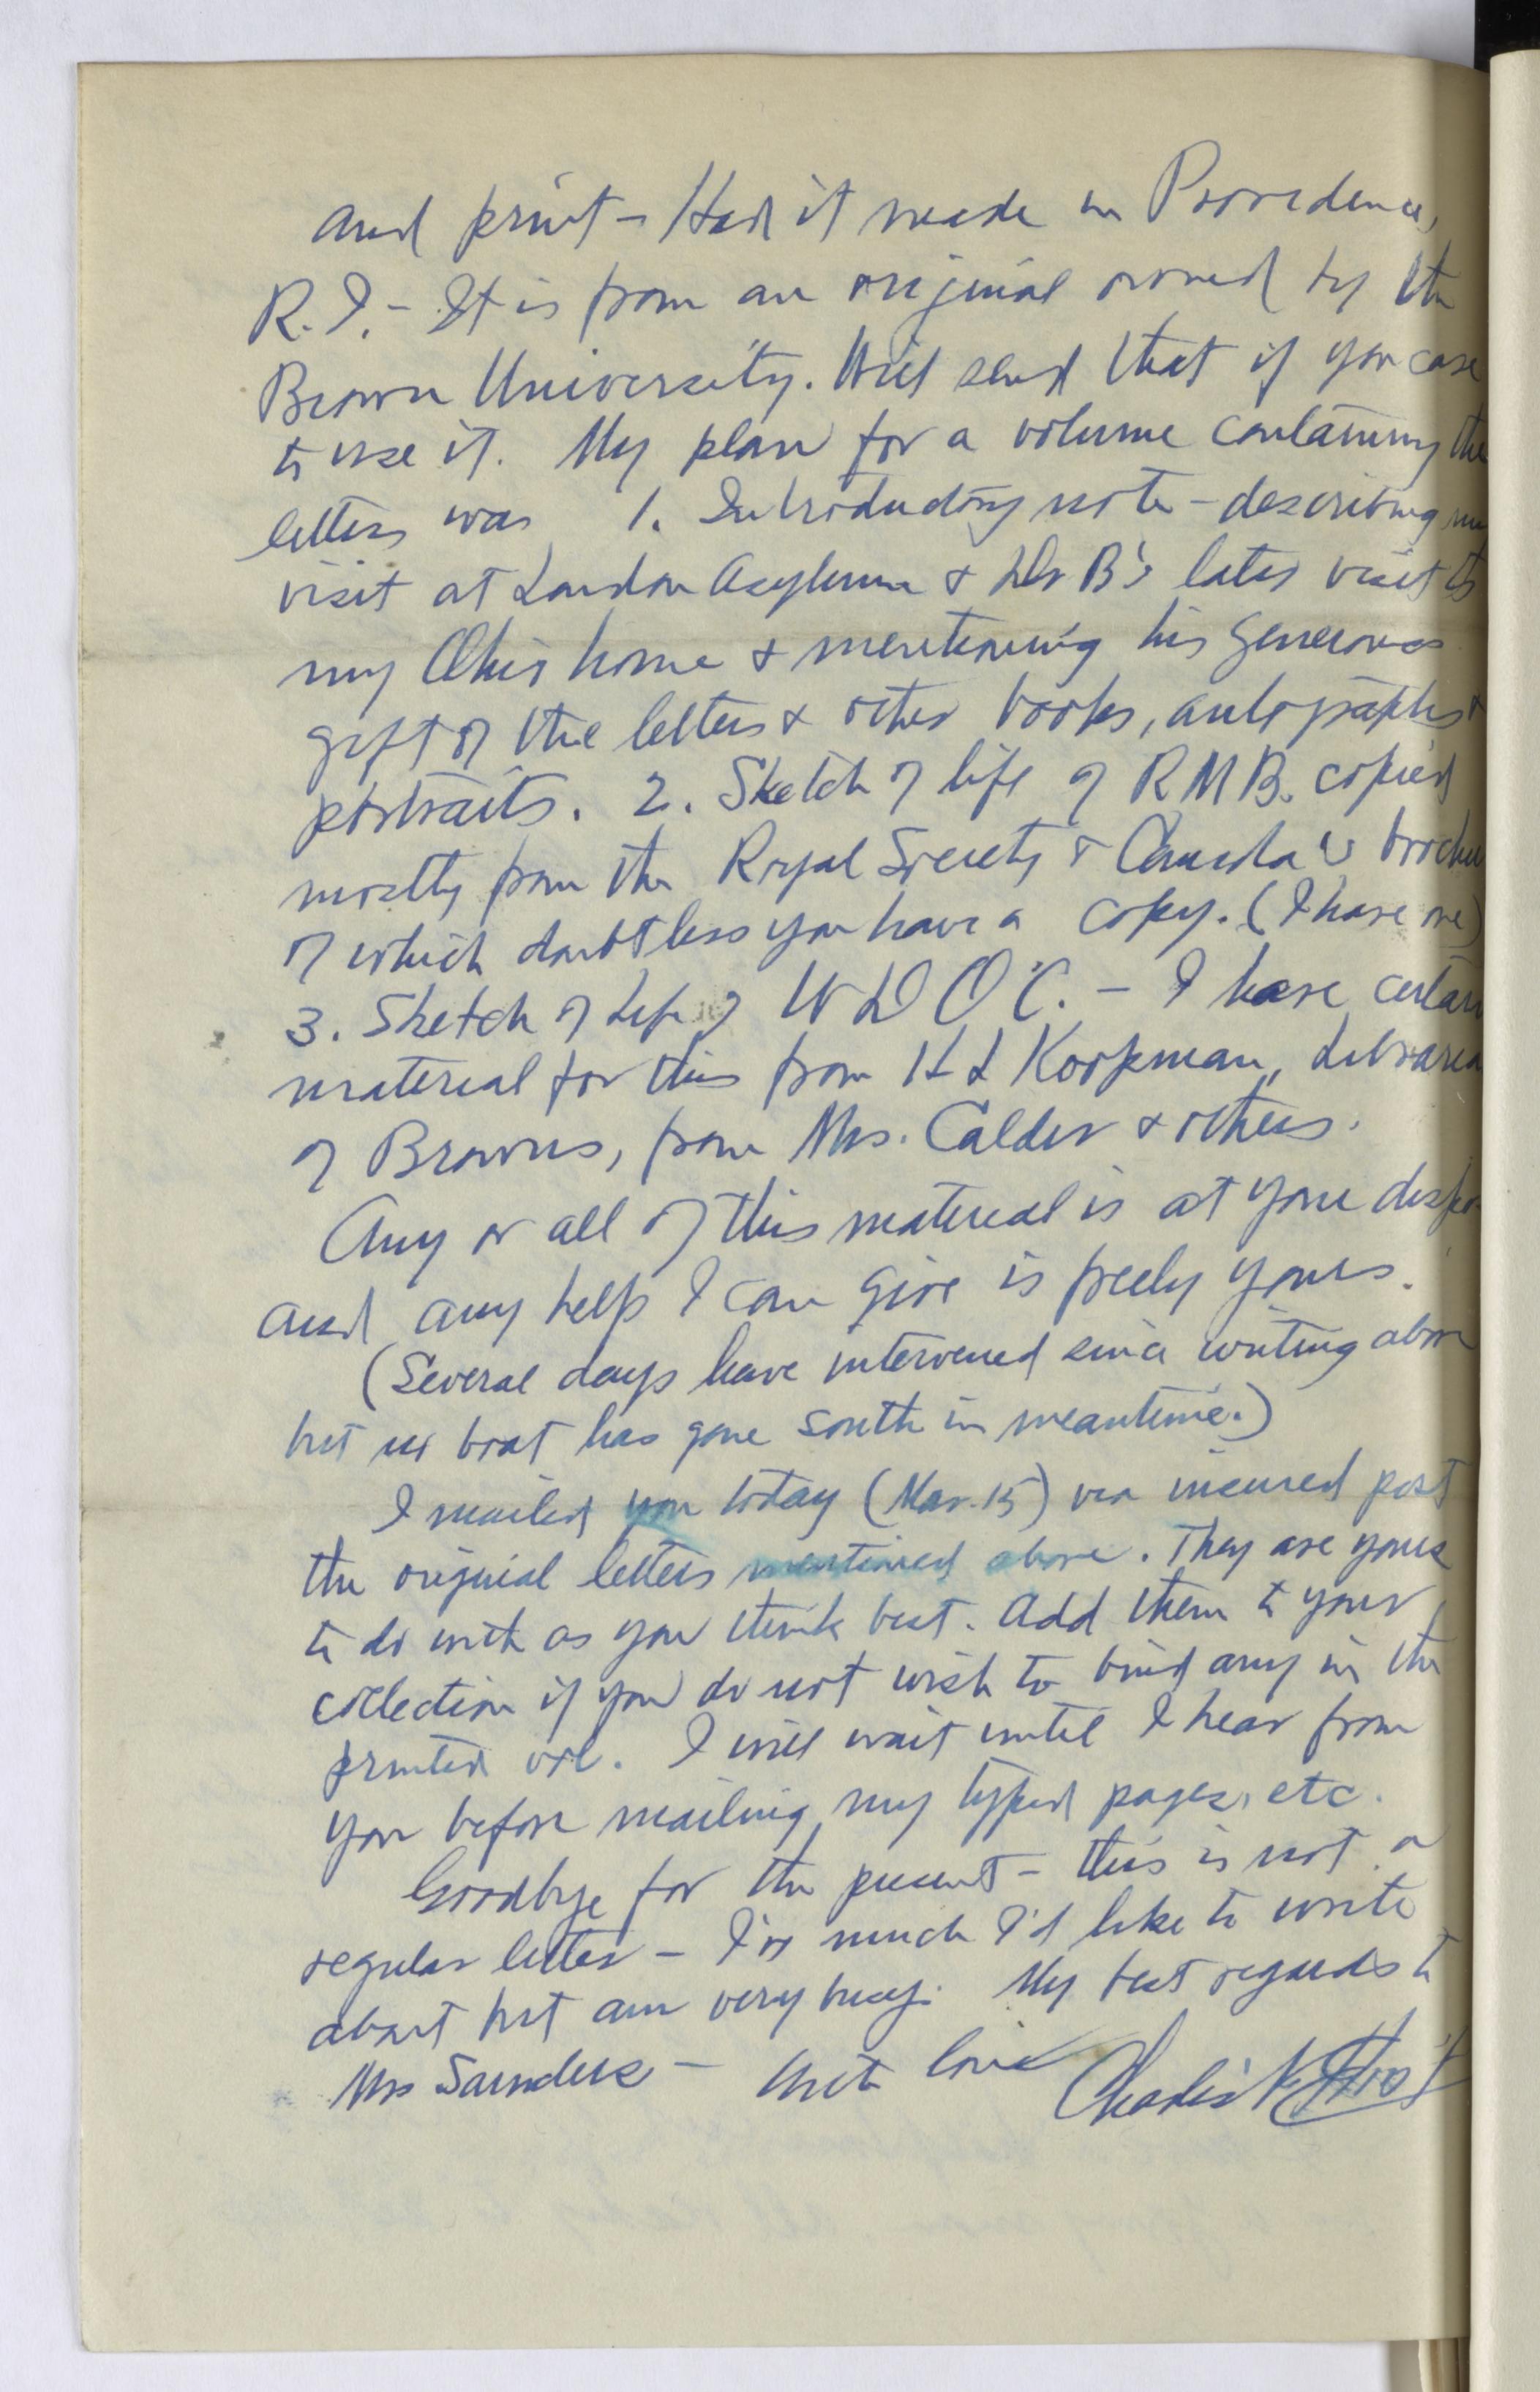 and print – Had it made in Providence,
R. I. – It is from an original owned by the
Brown University. Will send that if you care
to use it. My plan for a volume containing the
letters was 1. Introductory note – describing my
visit at London Asylum & Dr B's later visit to
my Ohio home & mentioning his generous
gift of the letters & other books, autographs &
portraits. 2. Sketch of life of R M B. copied
mostly from the Royal Society of Canada's
of which doubtless you have a copy. (I have one)
3. Sketch of Life of W D O'C. – I have certain
material for this from H L Koopman, Librarian
of Browns, from Mrs. Calder & others.
Any or all of this material is at your
and any help I can give is freely yours.
(Several days have intervened since writing above
but no boat has gone south in meantime.)
I mailed you today (Mar. 15) via insured post
the original letters mentioned above. They are yours
to do with as you think best. Add them to your
collection if you do not wish to bind any in the
printed vol. I will wait until I hear from
you before mailing my typed pages, etc.
Goodbye for the present – this is not a
regular letter – I've much I'd like to write
about but am very busy. My best regards to
Mrs Saunders – With love